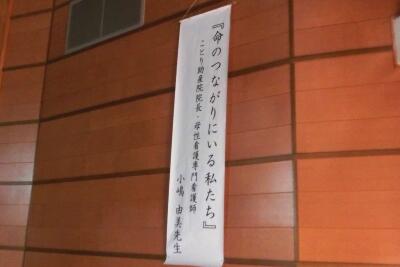 『命のつながりにいる私たち』
ことり助産院院長・母性看護専門看護師
小嶋 由美先生